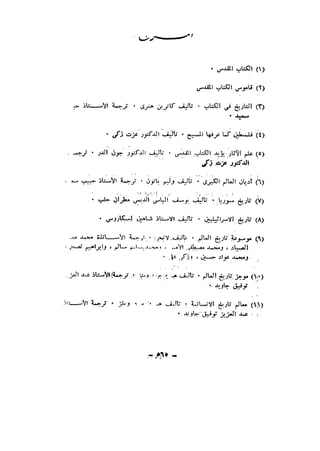 المراجع
(١) الكتاب المقدس ٠
(٢) قاموس الكتاب المقدس
(٣) التاريخ في الكتاب ٠ تأليف كاترين هنرى ٠ ترجمة الأستاذ
سعيد ٠
(٤) فلسطين كما عرفها المسيح ٠ تأليف الدكتور عزت زكى ٠
(٥) علم الآثار يؤيد الكتاب المقدس ٠ تأليف الدكتور جون الدر ٠ ترجمة
الدكتور عزت زكى
(٦) أديان العالم الكبرى ٠ تأليف وليم باتون ٠ ترجمة الأستاذ حبيب
(٧) تاريخ سوريا ٠ تأليف يوسف الياس الدبس مطران حلب ٠
(٨) تاريخ الاسرائيليين ٠ تأليف الاستاذ شاهين مكاريوس ٠
(٩) موسوعة تاريخ العالم ٠ تأليف لانجر ٠ ترجمة الأساتذة محمد
الصياد ، ومحمد مصطفى ، سالم ، وابراهيم
ومحمد عواد حسين ، وزكى على ٠
(١٠) موجز تاريخ العالم ٠ تأليف هـ ٠ ج ٠ ويلز ٠ ترجمة الأستاذ عبد العزيز
توفيق جاويد ٠
(١١) معالم تاريخ الانسانية ٠ تأليف هـ ٠ ج ٠ ويلز ٠ ترجمة الأستاذ
عبد العزيز توفيق جاويد ٠